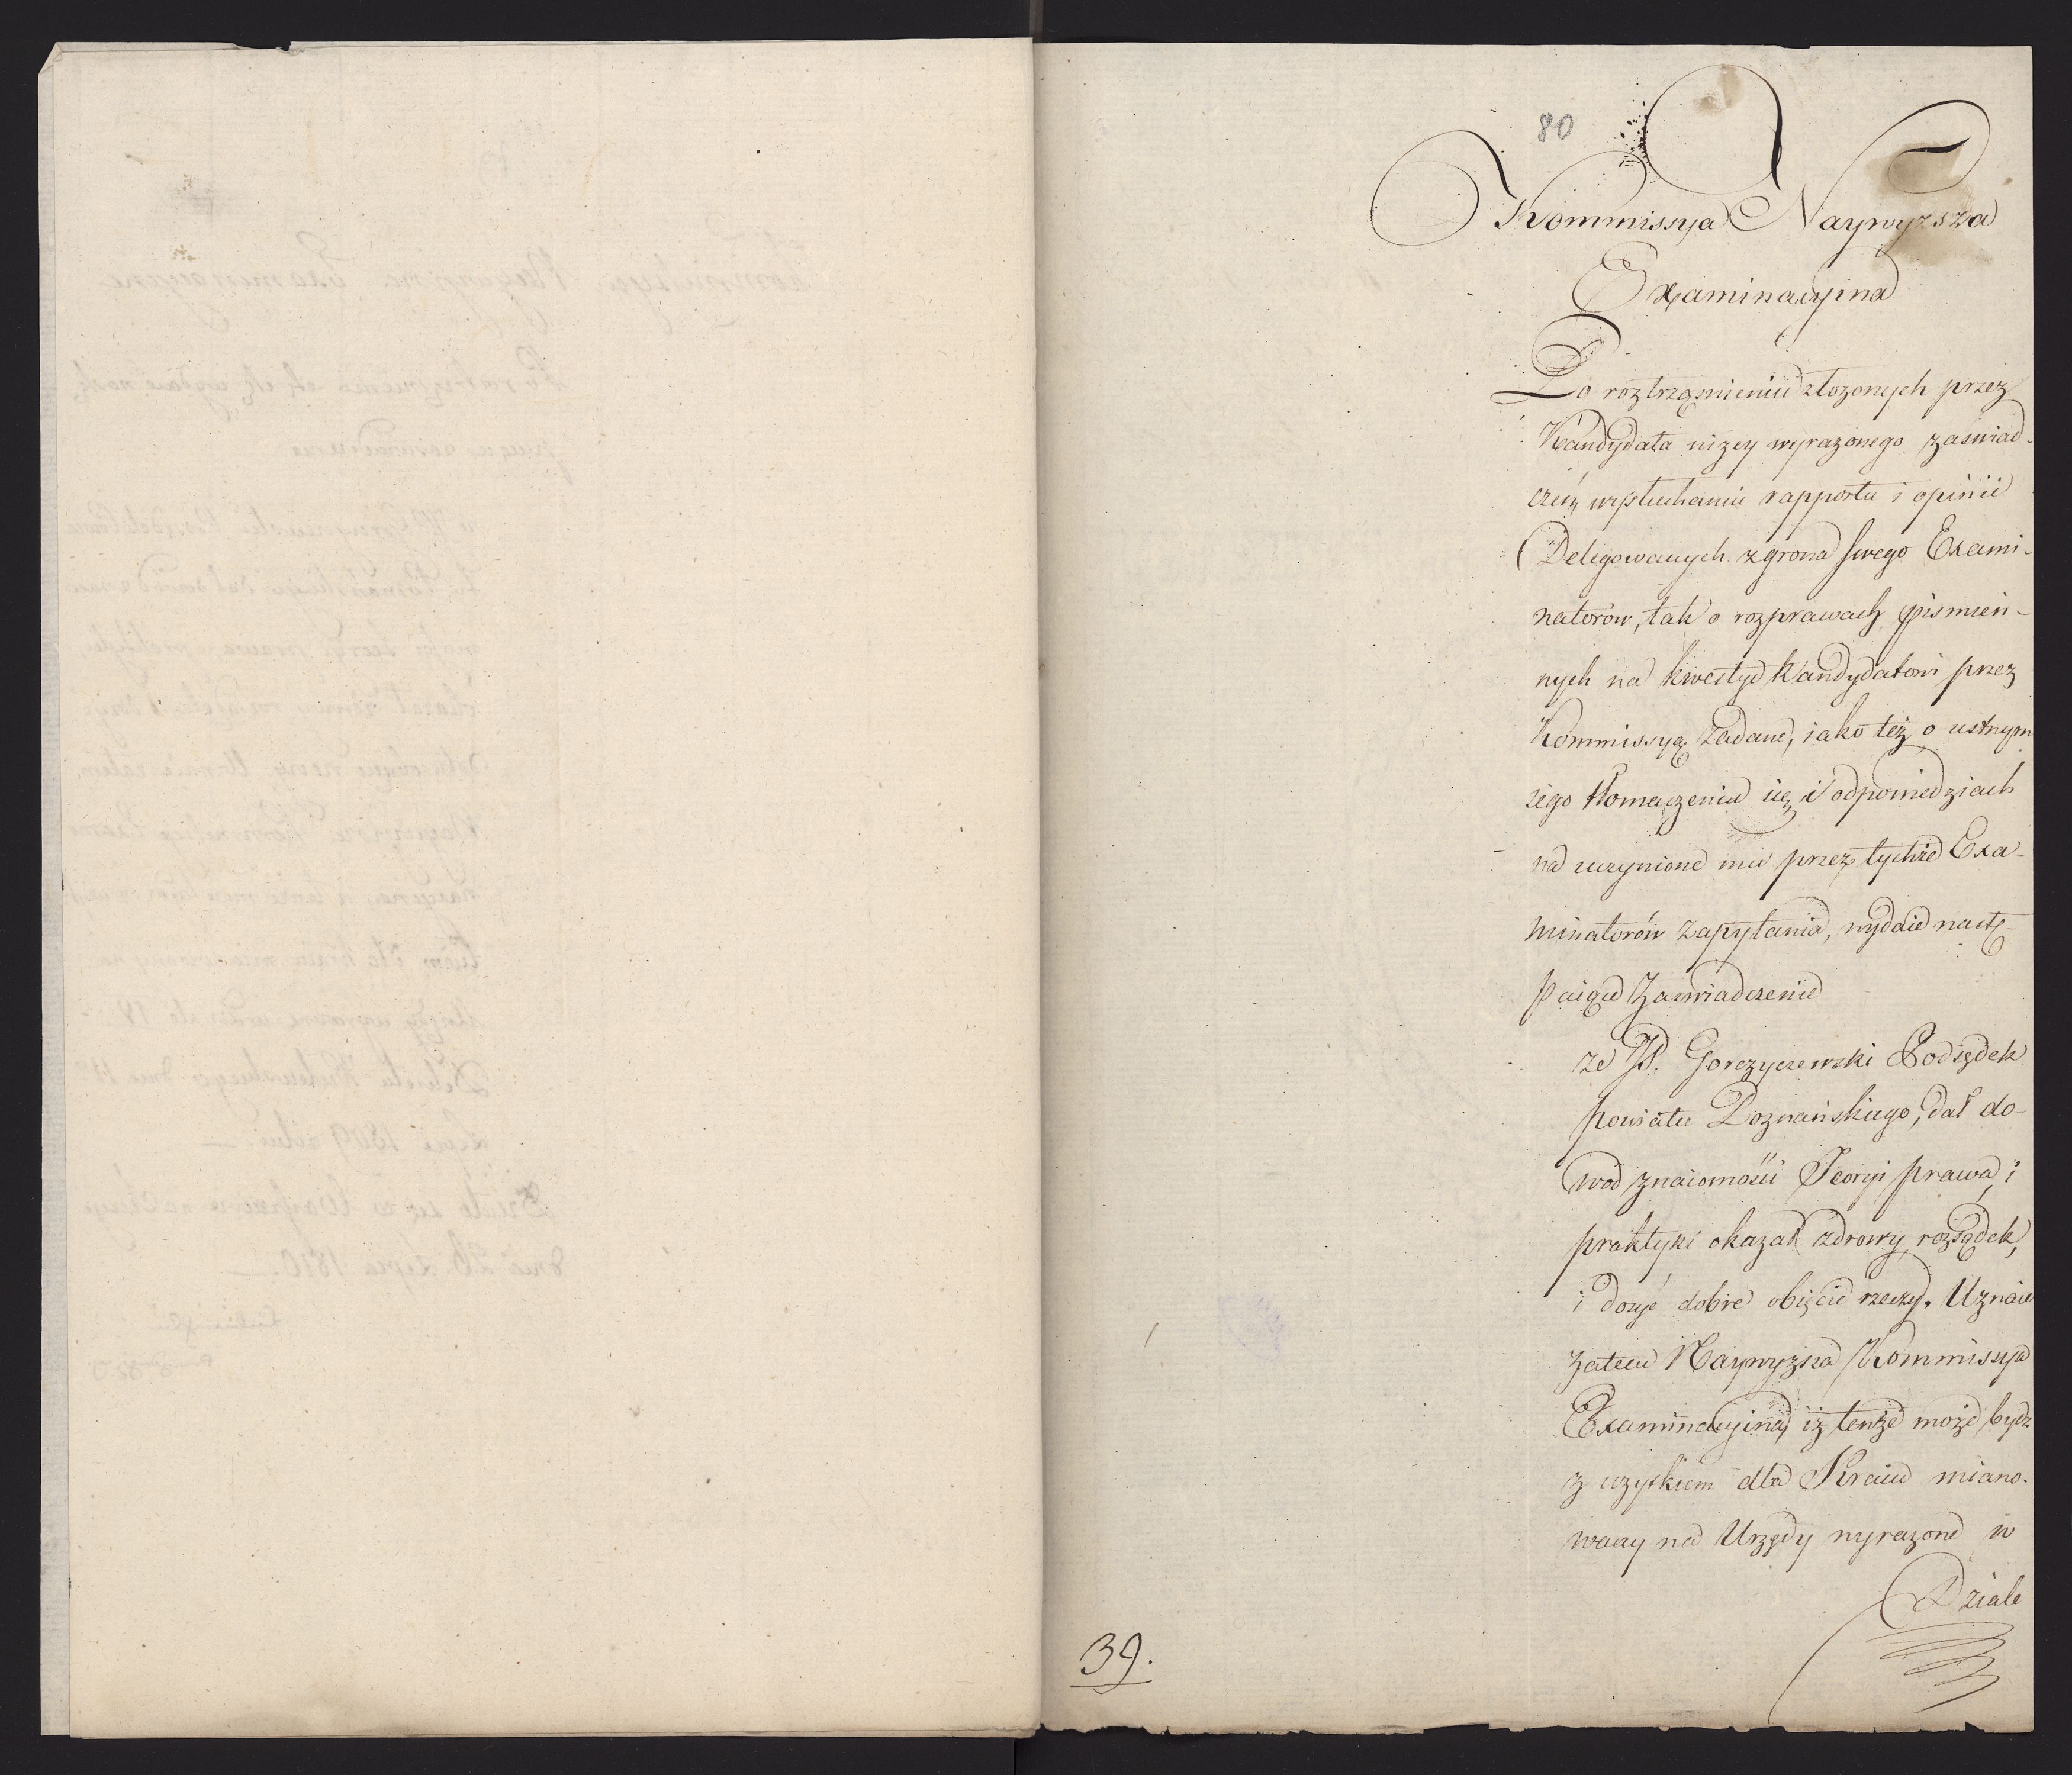 80
Kommissya Naywyzsza
Examinacyina
Po roztrząsnieniu złozonych przez
Kandydata nizey wyrazonego zaswiad-
czeń, wysłuchaniu rapportu i opinii
Delegowanych z grona swego Exami-
natorów, tak o rozprawach pismień-
nych na kwestye Kandydatowi przez
Kommissyą zadane, iako też o ustnym
iego tłomaczeniu się i odpowiedziach
na uczynione mu przez tychże Exa-
minatorów zapytania, wydaie nastę-
puiące Zaswiadczenie
ze JP. Gorczyczewski Podsędek
powiatu Poznańskiego, dał do-
wod znaiomości Teoryi prawa, i
praktyki okazał zdrowy rozsądek,
i dosyć dobre obięcie rzeczy. Uznaie
zatem Naywyzsza Kommissya
Examinacyina, iż tenże może bydz
z uzytkiem dla Kraiu miano-
wany na Urzędy wyrazone w
Dziale
39.